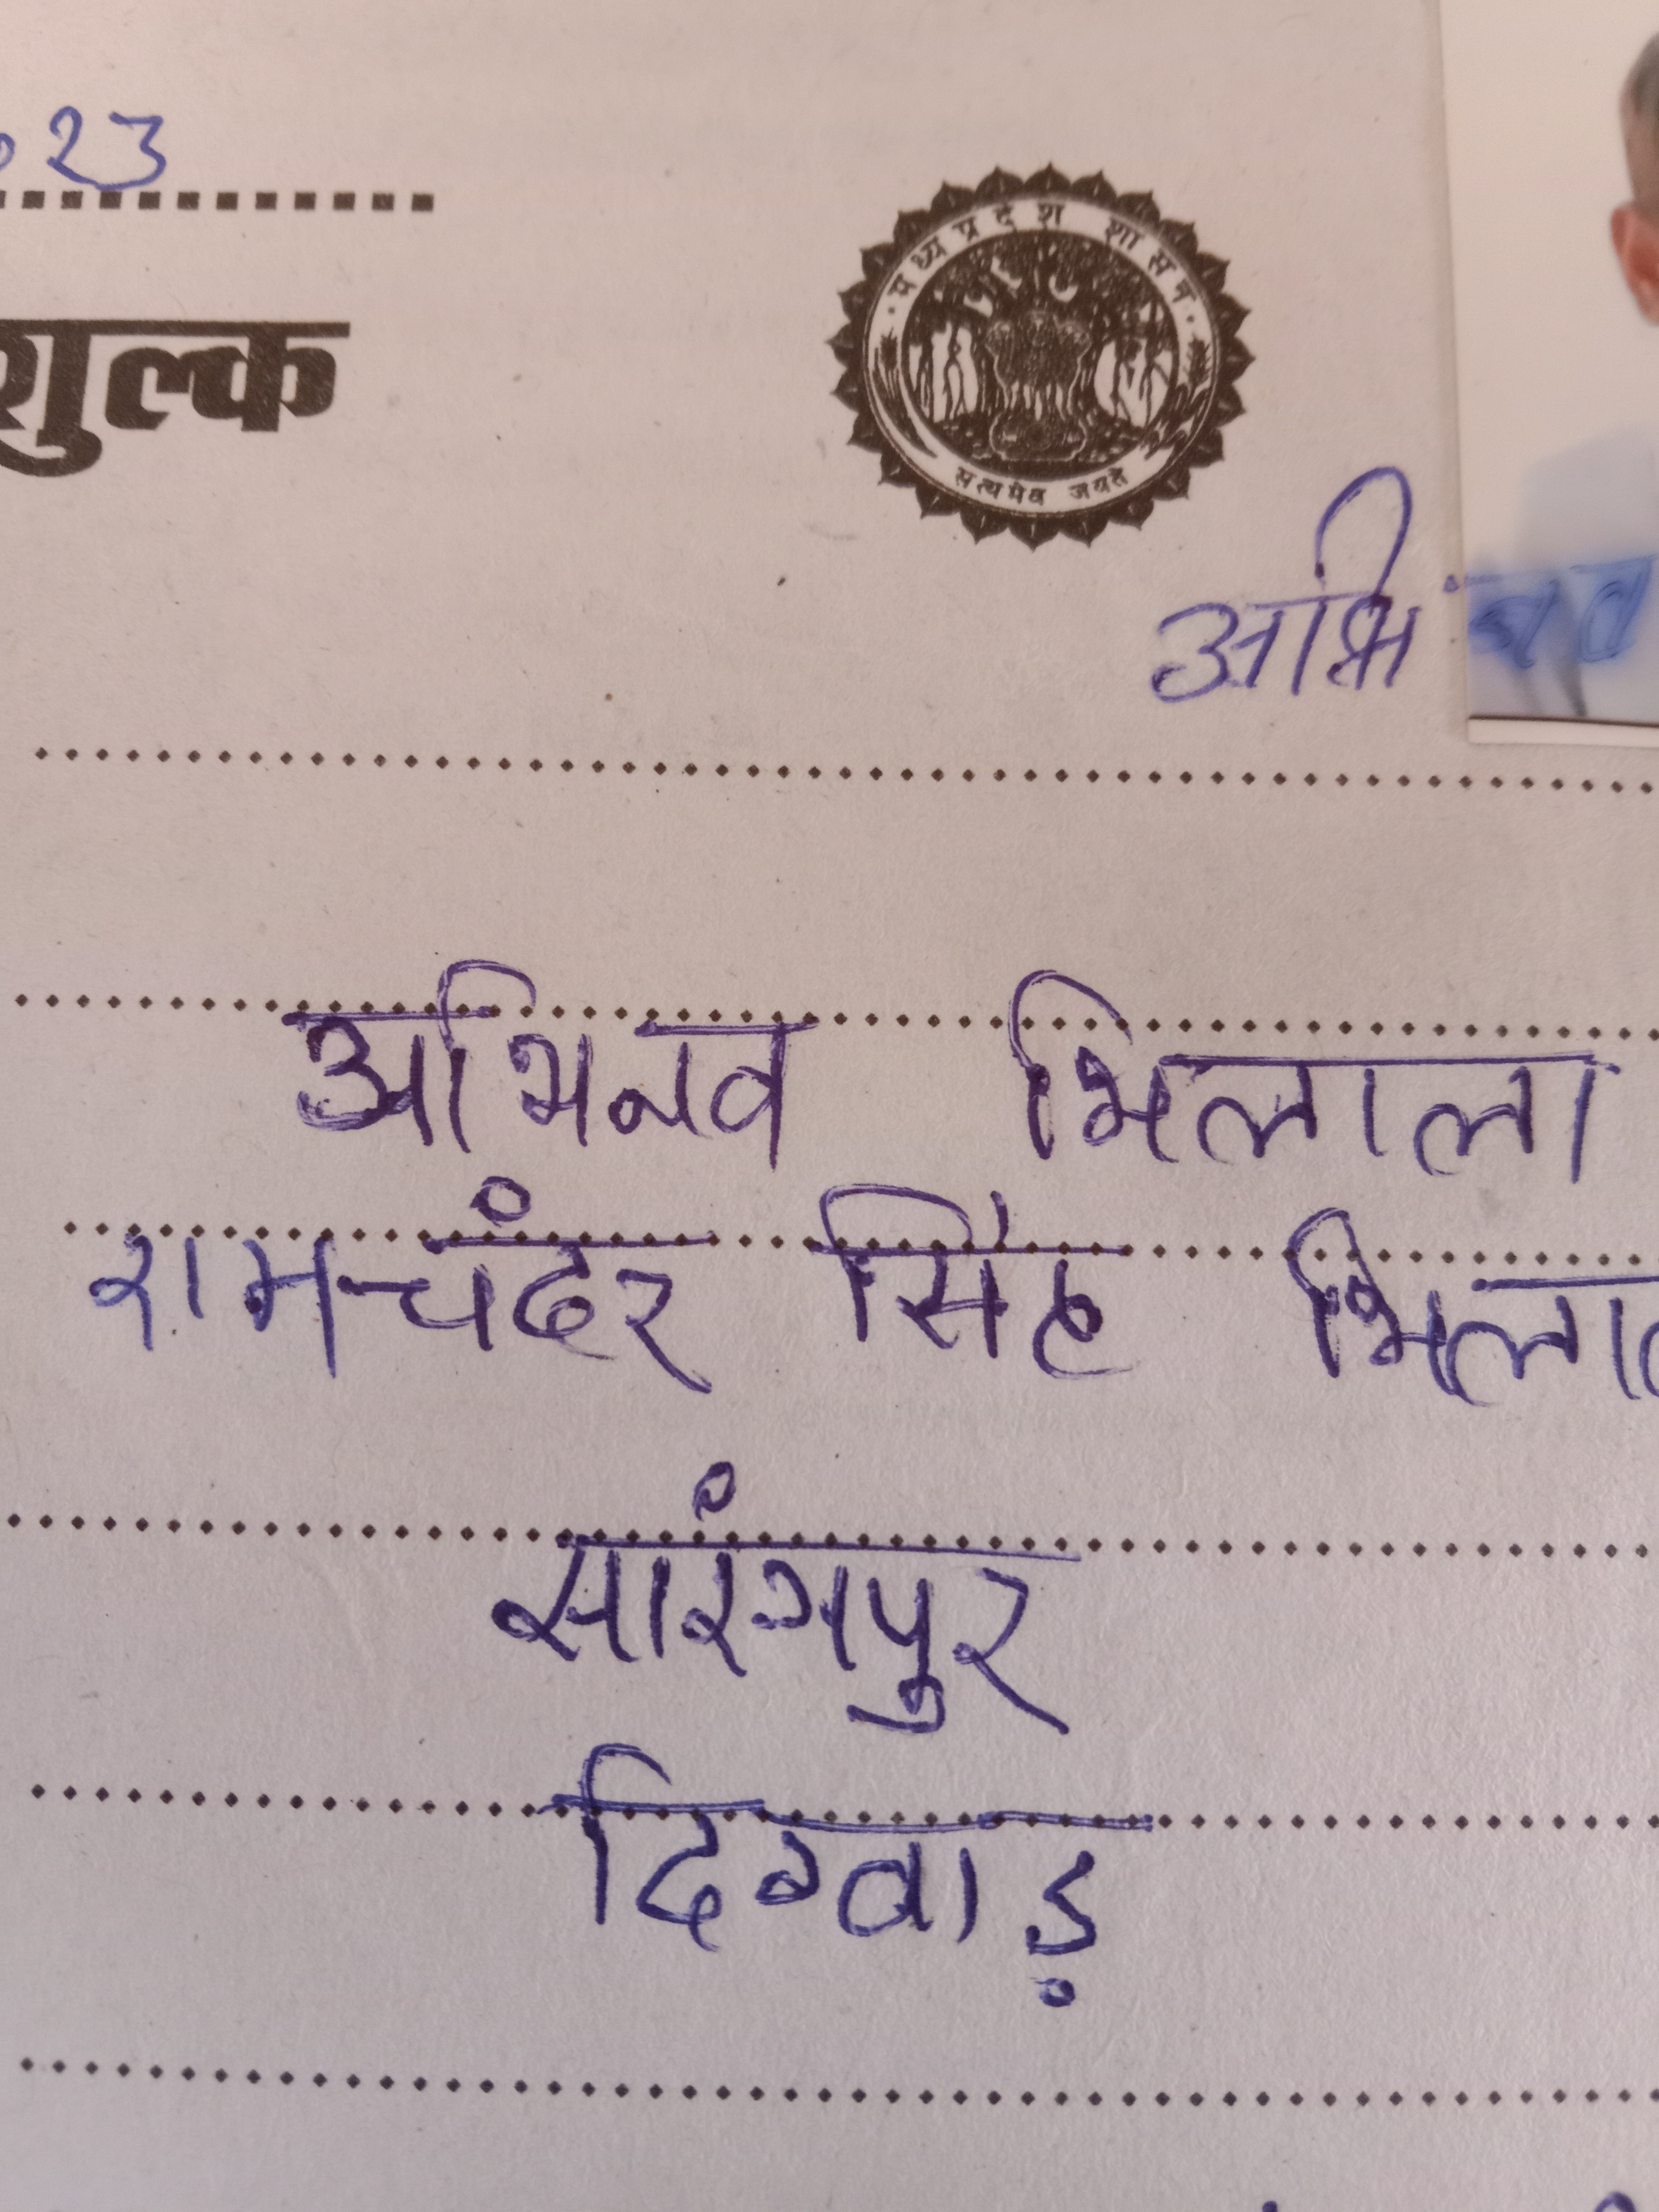 023
शुल्क
मध्यप्रदेश शासन
सत्यमेव जयते
अभिनव
अभिनव भिलाला
रामचंदर सिंह भिलाल
सारंगपुर
दिग्वाड़